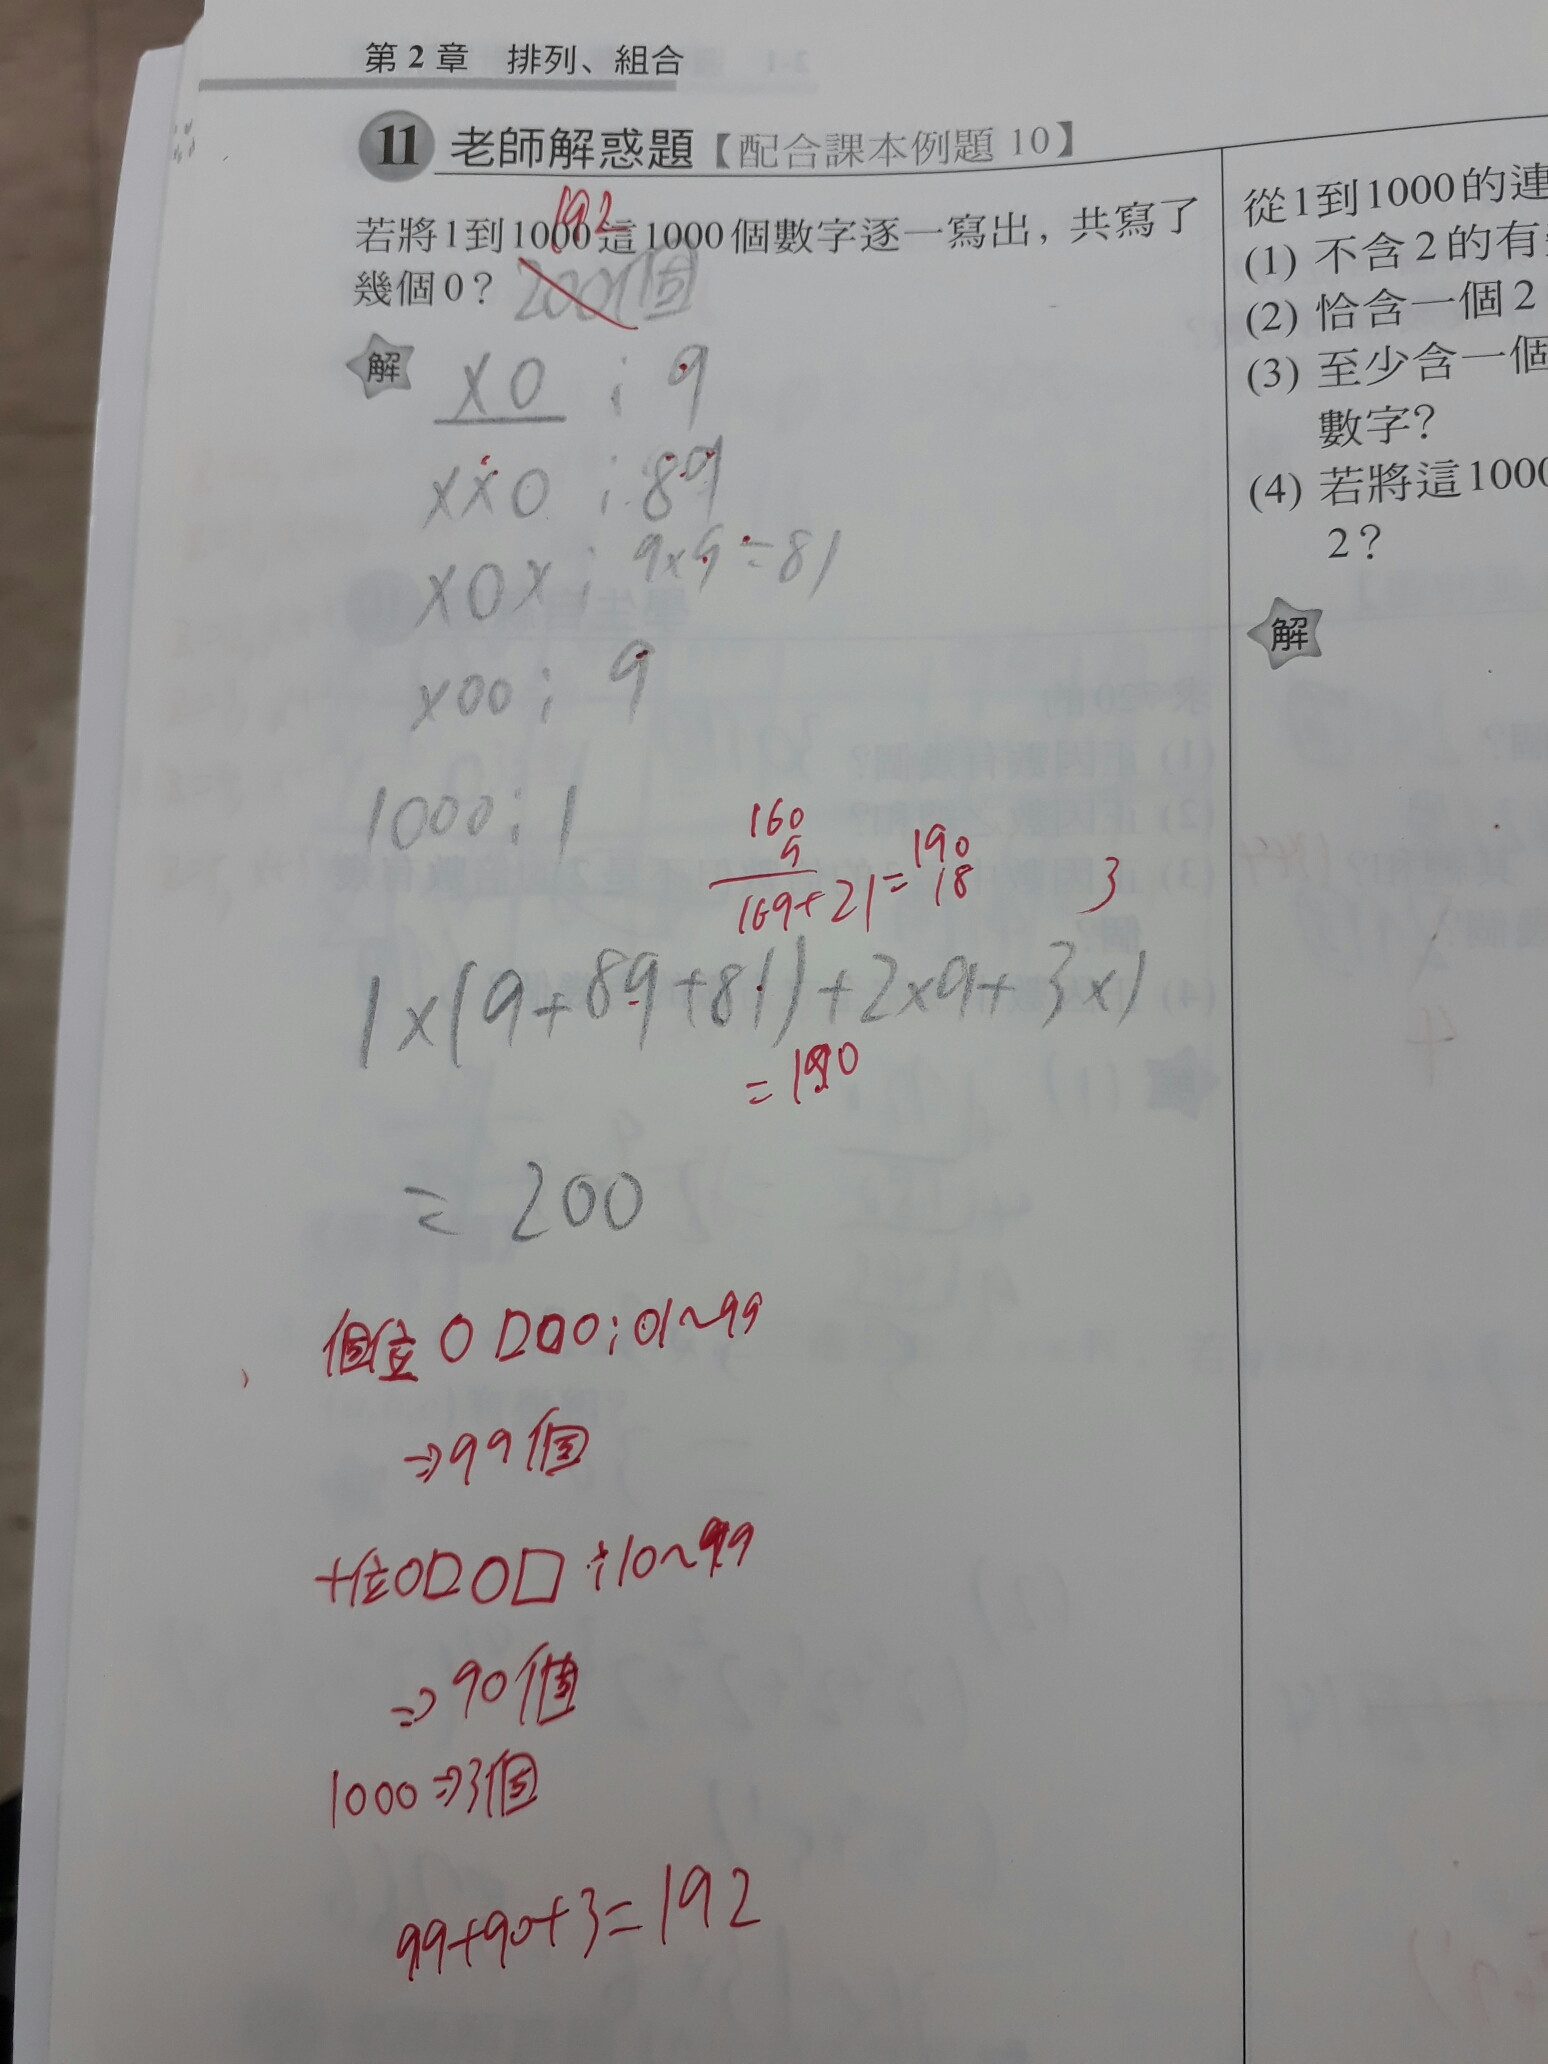 第2章 排列、組合
11 老師解惑題【配合課本例題10】
192
若將1到1000這1000個數字逐一寫出，共寫了
幾個0？ 200個
解
x0 ; 9
xx0 ; 89
x0x ; 9x9=81
x00 ; 9
1000 ; 1
160
9
169+21=190
18
3
1x(9+89+81)+2x9+3x1
=190
= 200
個位0 □□0 ; 01~99
⇒99個
十位0□0□ ; 10~99
⇒90個
1000⇒3個
99+90+3=192
從1到1000的連
(1) 不含2的有
(2) 恰含一個2
(3) 至少含一個
數字？
(4) 若將這1000
2？
解